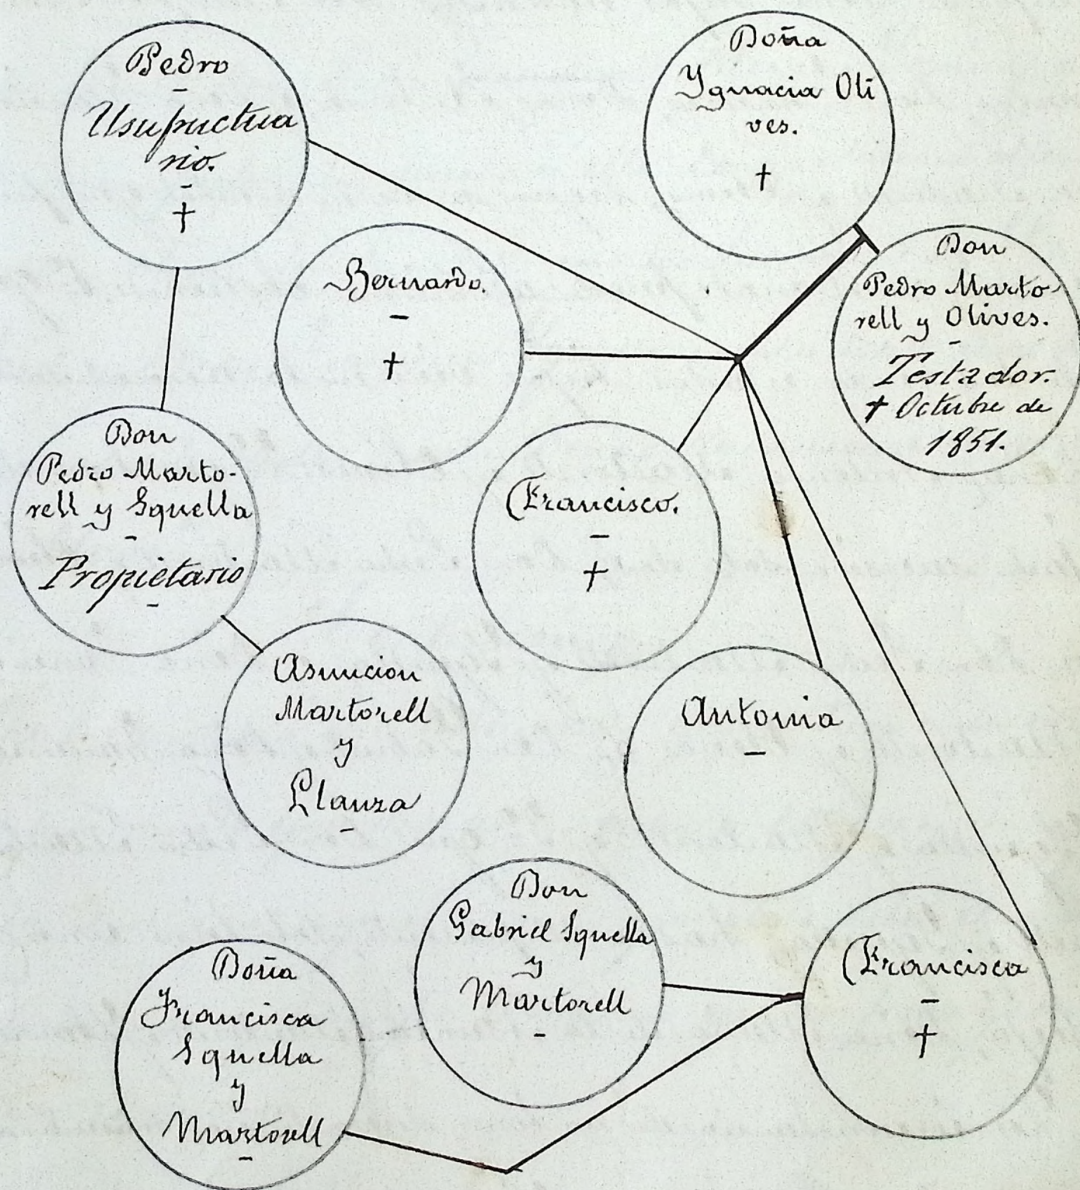 Pedro
Usufructua
rio.
†
Doña
Ygnacia Oli
ves.
†
Don
Pedro Marto-
rell y Olives.
Testador.
† Octubre de
1851.
Bernardo.
†
Don
Pedro Marto-
rell y Squella
Propietario
Francisco.
†
Asuncion
Martorell
y
Llanza
Antonia
Don
Gabriel Squella
y
Martorell
Francisca
†
Doña
Francisca
Squella
y
Martorell